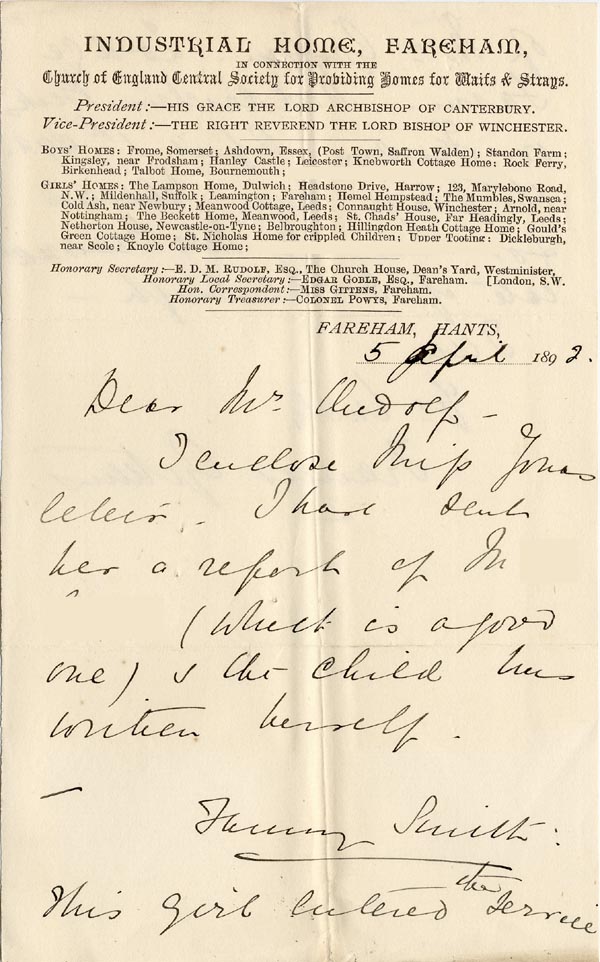 INDUSTRIAL HOME, FAREHAM,
IN CONNECTION WITH THE
Church of England Central Society for Providing Homes for Waifs & Strays.
President:—HIS GRACE THE LORD ARCHBISHOP OF CANTERBURY.
Vice-President:—THE RIGHT REVEREND THE LORD BISHOP OF WINCHESTER.
BOYS' HOMES: Frome, Somerset; Ashdown, Essex, (Post Town, Saffron Walden); Standon Farm;
Kingsley, near Frodsham; Hanley Castle; Leicester; Knebworth Cottage Home; Rock Ferry,
Birkenhead; Talbot Home, Bournemouth;
GIRLS' HOMES: The Lampson Home, Dulwich; Headstone Drive, Harrow; 123, Marylebone Road,
N.W.; Mildenhall, Suffolk; Leamington; Fareham; Hemel Hempstead; The Mumbles, Swansea;
Cold Ash, near Newbury; Meanwood Cottage, Leeds; Connaught House, Winchester; Arnold, near
Nottingham; The Beckett Home, Meanwood, Leeds; St. Chads' House, Far Headingly, Leeds;
Netherton House, Newcastle-on-Tyne; Belbroughton; Hillingdon Heath Cottage Home; Gould's
Green Cottage Home; St. Nicholas Home for crippled Children; Upper Tooting; Dickleburgh,
near Scole; Knoyle Cottage Home;
Honorary Secretary:—E. D. M. RUDOLF, ESQ., The Church House, Dean's Yard, Westminister,
Honorary Local Secretary:—EDGAR GOBLE, ESQ., Fareham. [London, S.W.
Hon. Correspondent:—MISS GITTENS, Fareham.
Honorary Treasurer:—COLONEL POWYS, Fareham.
FAREHAM, HANTS,
5 April 1892.
Dear Mr Rudolf –
I enclose Miss Jonas
letter. I have sent
her a report of M
(which is a good
one) & the child has
written herself.
Fanny Smith.
This girl entered the service